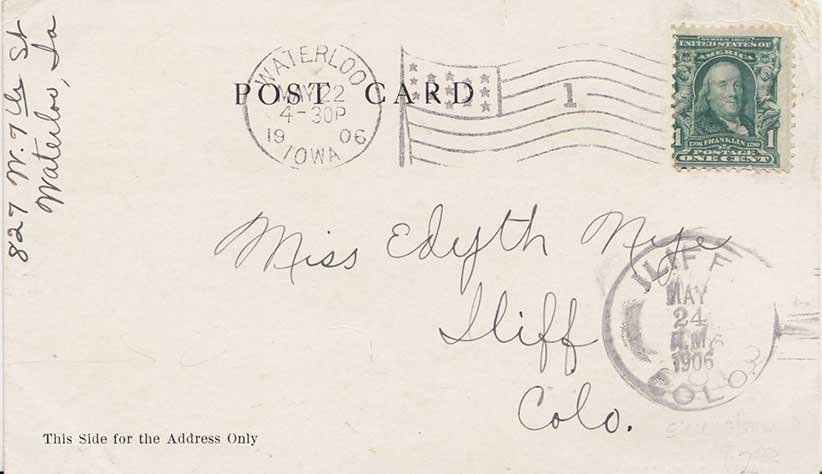 827 W. 7th St
Waterloo, Ia
WATERLOO
MAY 22
4-30P
1906
IOWA
POST CARD
1
SERIES 1902
UNITED STATES OF
AMERICA
1706 FRANKLIN 1790
POSTAGE
1 ONE CENT 1
Miss Edyth Nye
Iliff
Colo.
ILIFF
MAY
24
A.M.
1906
COLO.
This Side for the Address Only